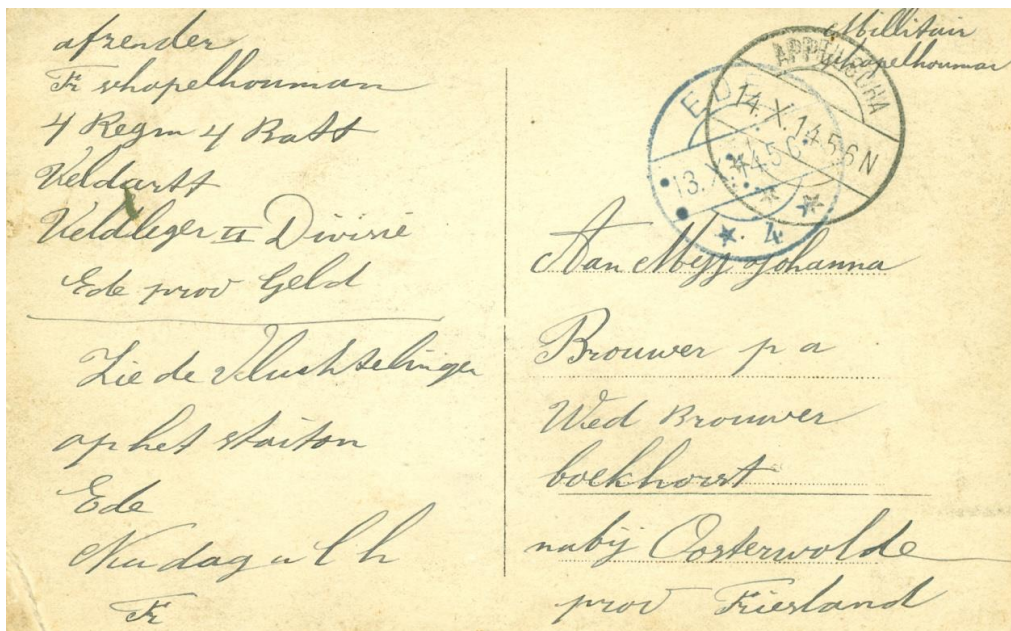 afzender
Fr schapelhouman
4 Regm 4 Batt
Veldartt
Veldleger II Divisie
Ede prov Geld
Zie de Vluchtelinger
op het staiton
Ede
Nu dag u l h
Fr
Millitair
schapelhouman
APPELSCHA
14.X.14 5-6 N
EDE
13.X.14 5
4
Aan Mejj Johanna
Brouwer p a
Wed Brouwer
boekhorst
nabij Oosterwolde
prov Friesland